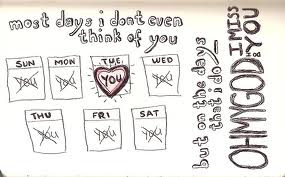 most days i dont even
think of you
SUN MON TUE WED
you you YOU you
THU FRI SAT
you you you
but on the days
that i do_
OHMYGOD I MISS YOU